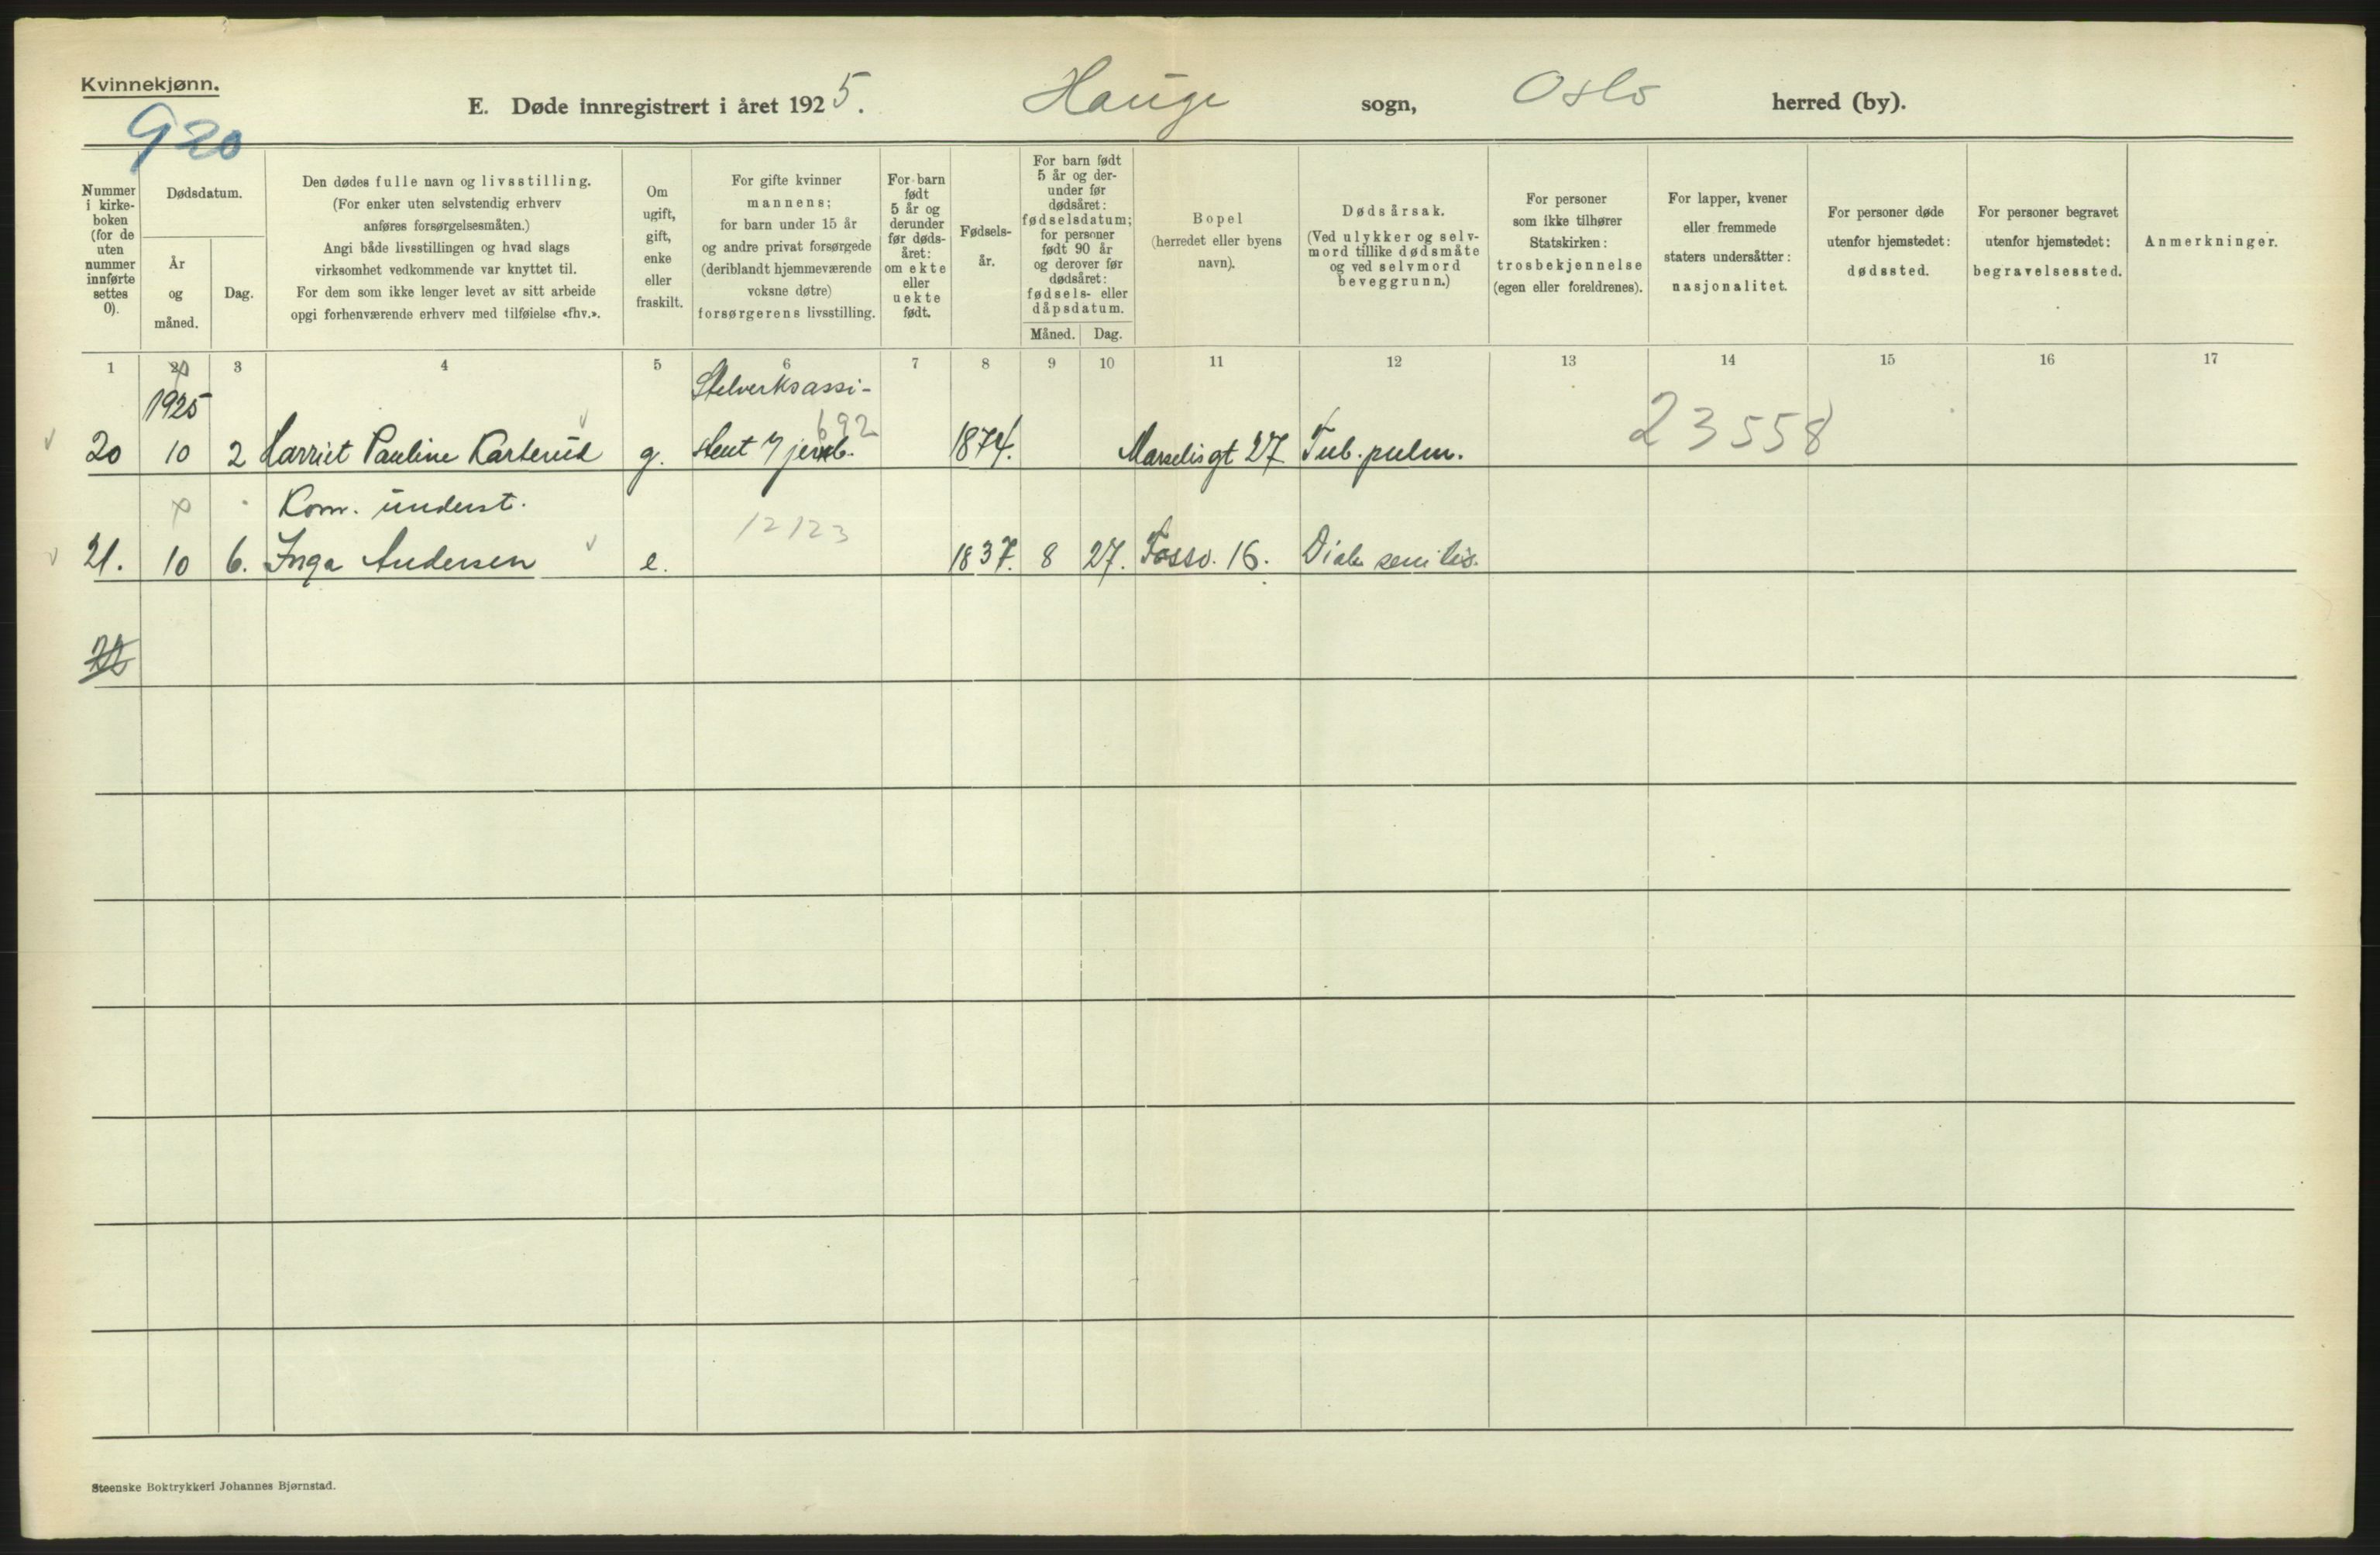 Kvinnekjønn.
920
E. Døde innregistrert i året 1925. Hauge sogn, Oslo herred (by).
Nummer
i kirke-
boken
(for de
uten
nummer
innførte
settes
0).
Dødsdatum.
År
og
måned.
Dag.
Den dødes fulle navn og livsstilling.
(For enker uten selvstendig erhverv
anføres forsørgelsesmåten.)
Angi både livsstillingen og hvad slags
virksomhet vedkommende var knyttet til.
For dem som ikke lenger levet av sitt arbeide
opgi forhenværende erhverv med tilføielse «fhv.».
Om
ugift,
gift,
enke
eller
fraskilt.
For gifte kvinner
mannens;
for barn under 15 år
og andre privat forsørgede
(deriblandt hjemmeværende
voksne døtre)
forsørgerens livsstilling.
For barn
født
5 år og
derunder
før døds-
året:
om ekte
eller
uekte
født.
Fødsels-
år.
For barn født
5 år og der-
under før
dødsåret:
fødselsdatum;
for personer
født 90 år
og derover før
dødsåret:
fødsels- eller
dåpsdatum.
Måned.
Dag.
Bopel
(herredet eller byens
navn).
Dødsårsak.
(Ved ulykker og selv-
mord tillike dødsmåte
og ved selvmord
beveggrunn.)
For personer
som ikke tilhører
Statskirken:
trosbekjennelse
(egen eller foreldrenes).
For lapper, kvener
eller fremmede
staters undersåtter:
nasjonalitet.
For personer døde
utenfor hjemstedet:
dødssted.
For personer begravet
utenfor hjemstedet:
begravelsessted.
Anmerkninger.
1 3 4 5 6 7 8 9 10 11 12 13 14 15 16 17
1925
Stelverksassi-
692
20 10 2 Harriet Pauline Karterud g. stent 1874. Marselisgt 27 Tub. pulm. 23558
Kom. underst.
12123
21. 10 6. Inga Andersen e. 1837. 8 27. Fossv. 16. senilis.
22
Steenske Boktrykkeri Johannes Bjørnstad.